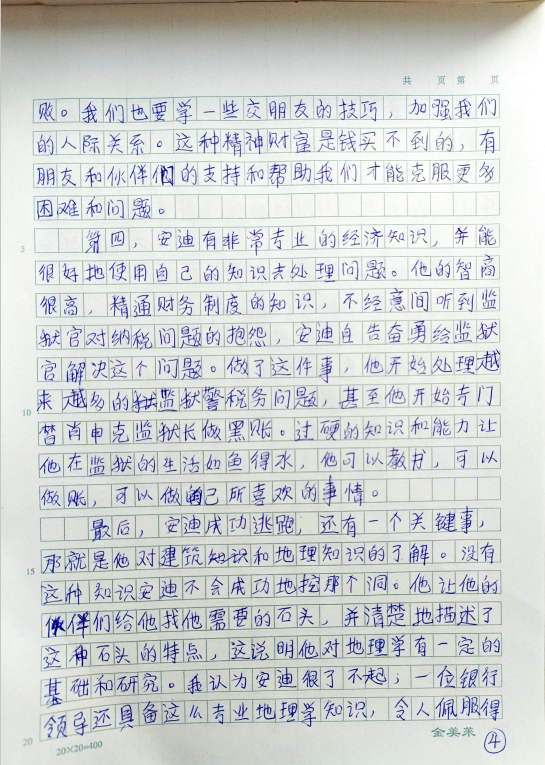 共 页 第 页
败。我们也要学一些交朋友的技巧，加强我们
的人际关系。这种精神财富是钱买不到的，有
朋友和伙伴们的支持和帮助我们才能克服更多
困难和问题。
第四，安迪有非常专业的经济知识，并能
5
很好地使用自己的知识去处理问题。他的智商
很高，精通财务制度的知识，不经意间听到监
狱官对纳税问题的抱怨，安迪自告奋勇给监狱
官解决这个问题。做了这件事，他开始处理越
来越多的监狱警税务问题，甚至他开始专门
10
替肖申克监狱长做黑账。过硬的知识和能力让
他在监狱的生活如鱼得水，他可以教书，可以
做账，可以做自己所喜欢的事情。
最后，安迪成功逃跑，还有一个关键事，
那就是他对建筑知识和地理知识的了解。没有
15
这种知识安迪不会成功地挖那个洞。他让他的
伙伴们给他找他需要的石头，并清楚地描述了
这种石头的特点，这说明他对地理学有一定的
基础和研究。我认为安迪很了不起，一位银行
领导还具备这么专业地理学知识，令人佩服得
20
20×20=400
金美莱
4